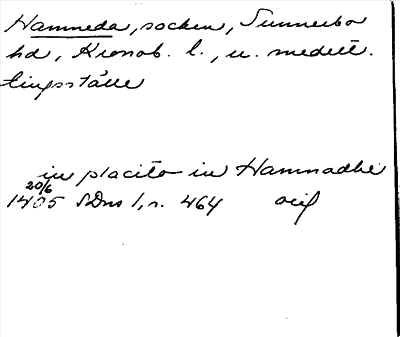 Hamneda, socken, Sunnerbo
hd, Kronob. l., u. medelt.
tingsställe
in placito in Hamnadhe
20/6
1405 SDns 1, n. 464 orig